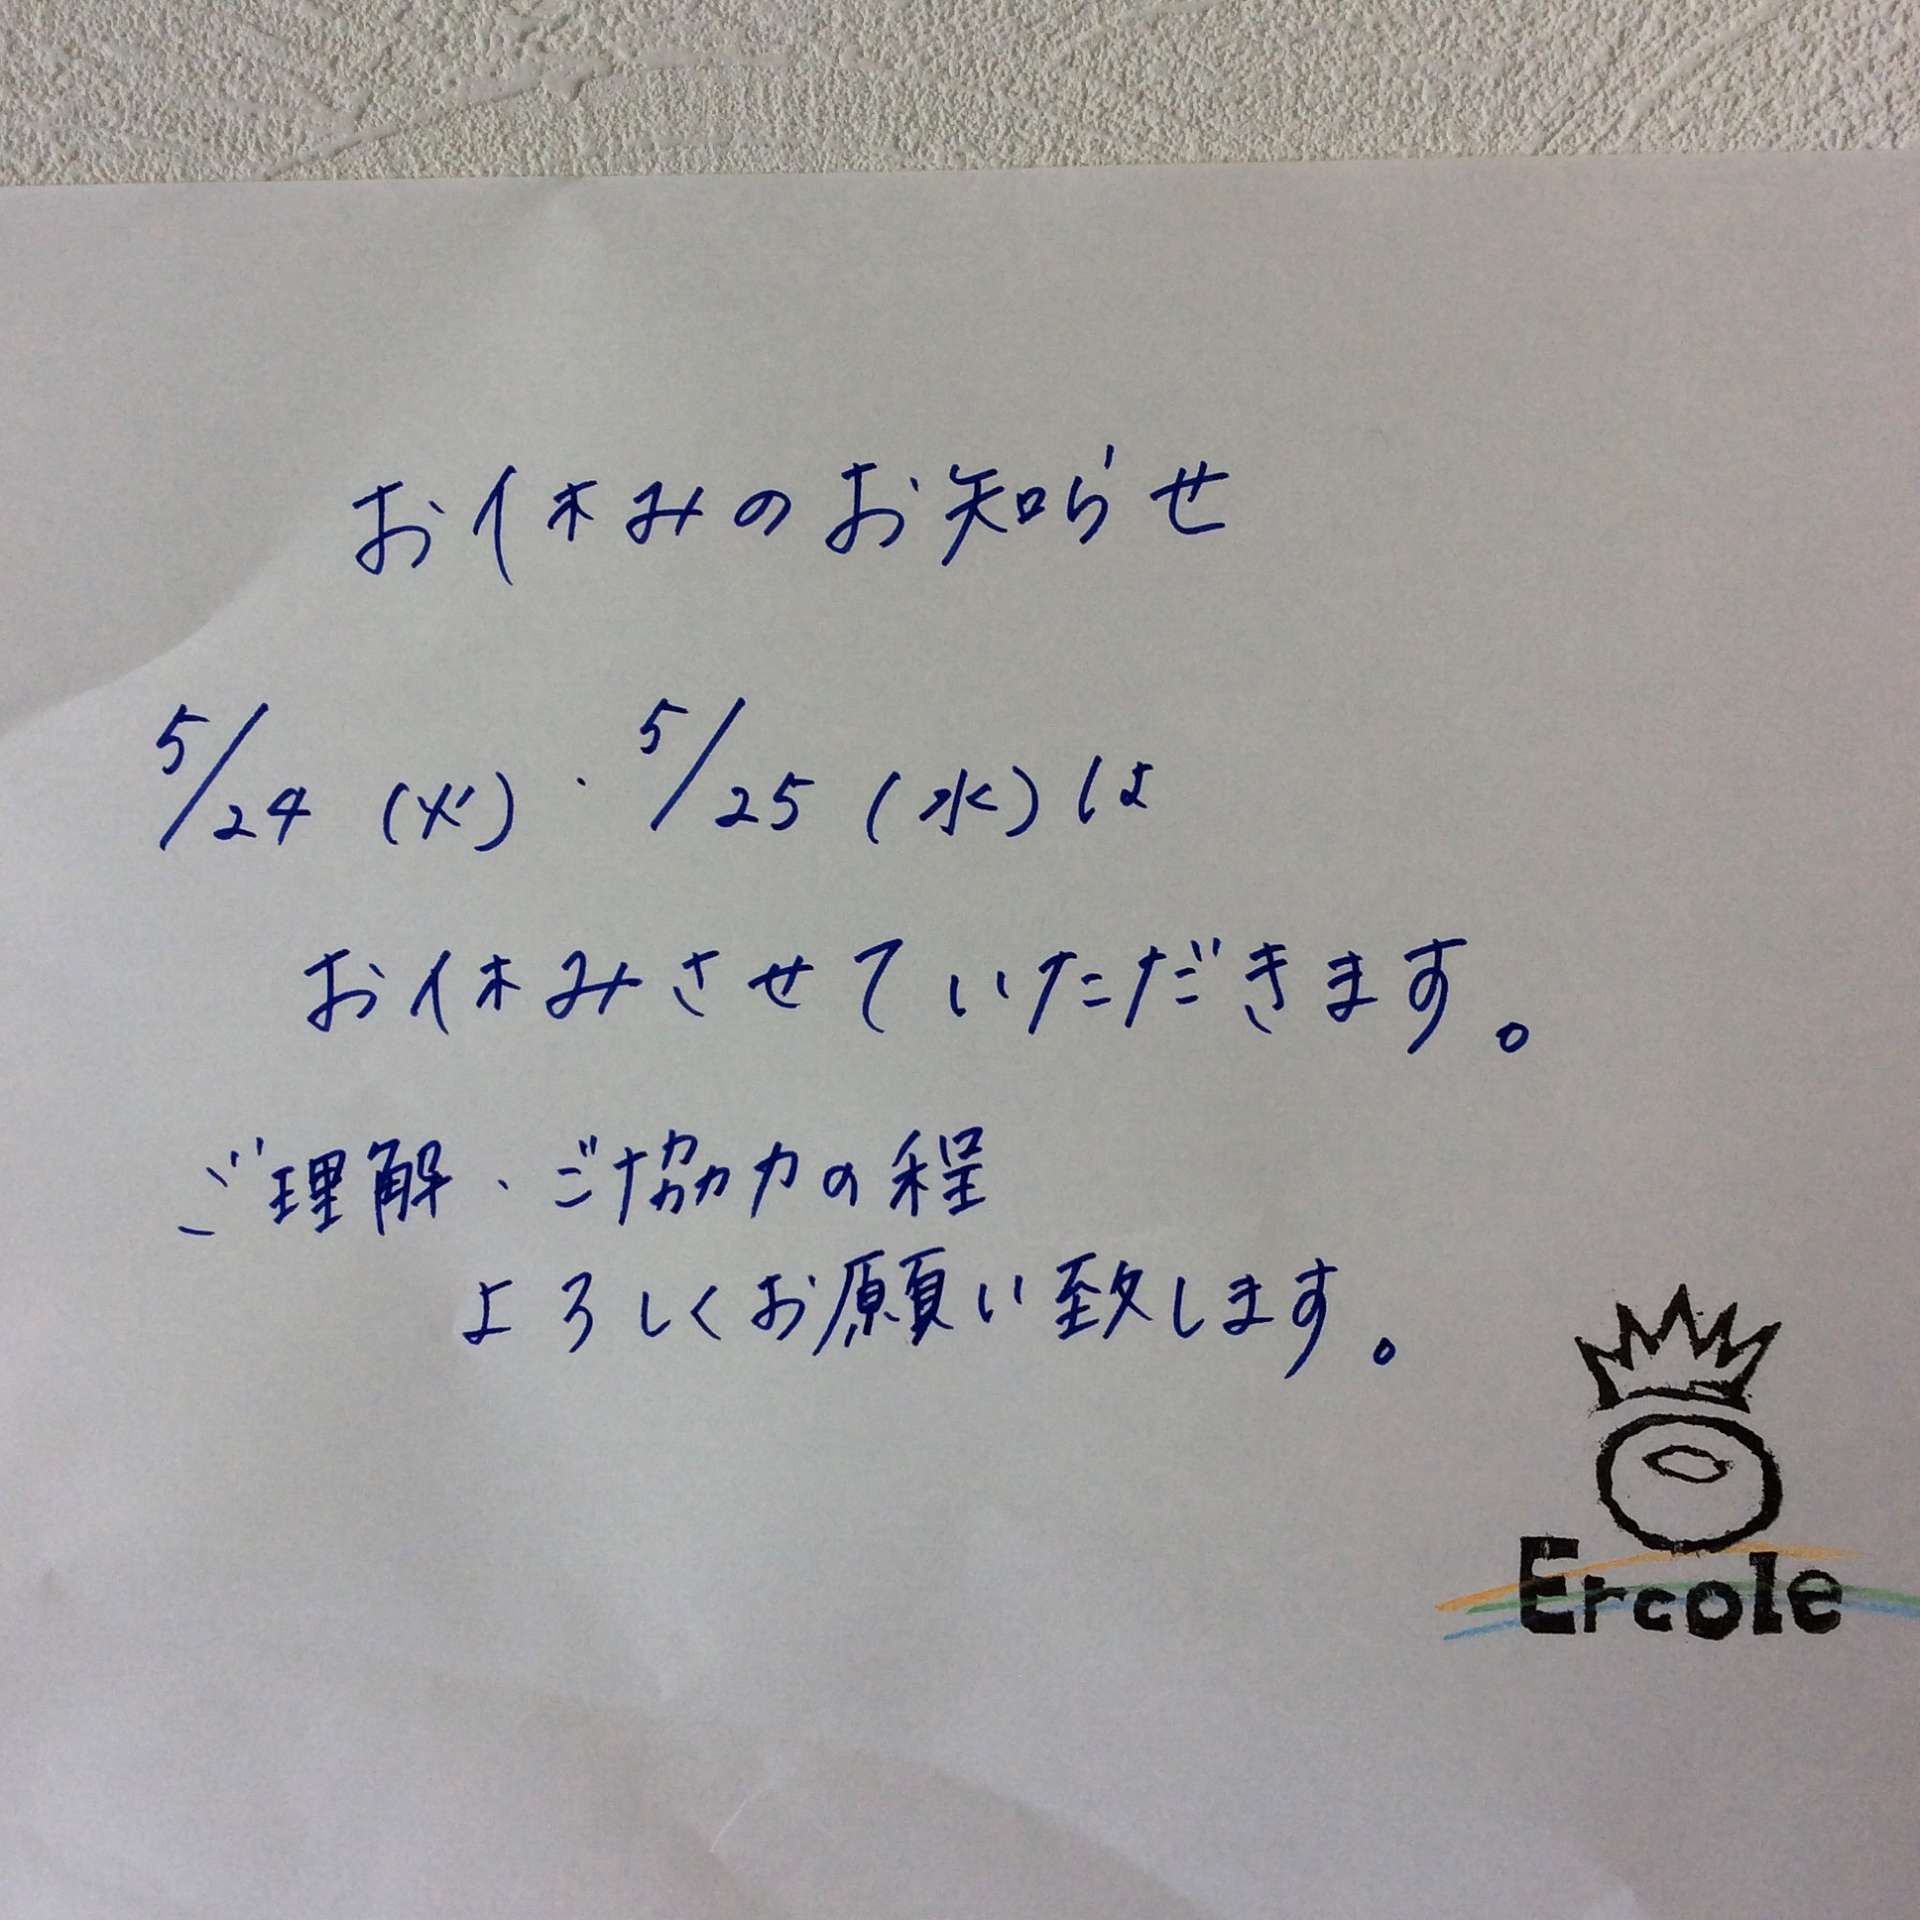 お休みのお知らせ
5/24 (火)・5/25 (水) は
お休みさせていただきます。
ご理解・ご協力の程
よろしくお願い致します。
Ercole